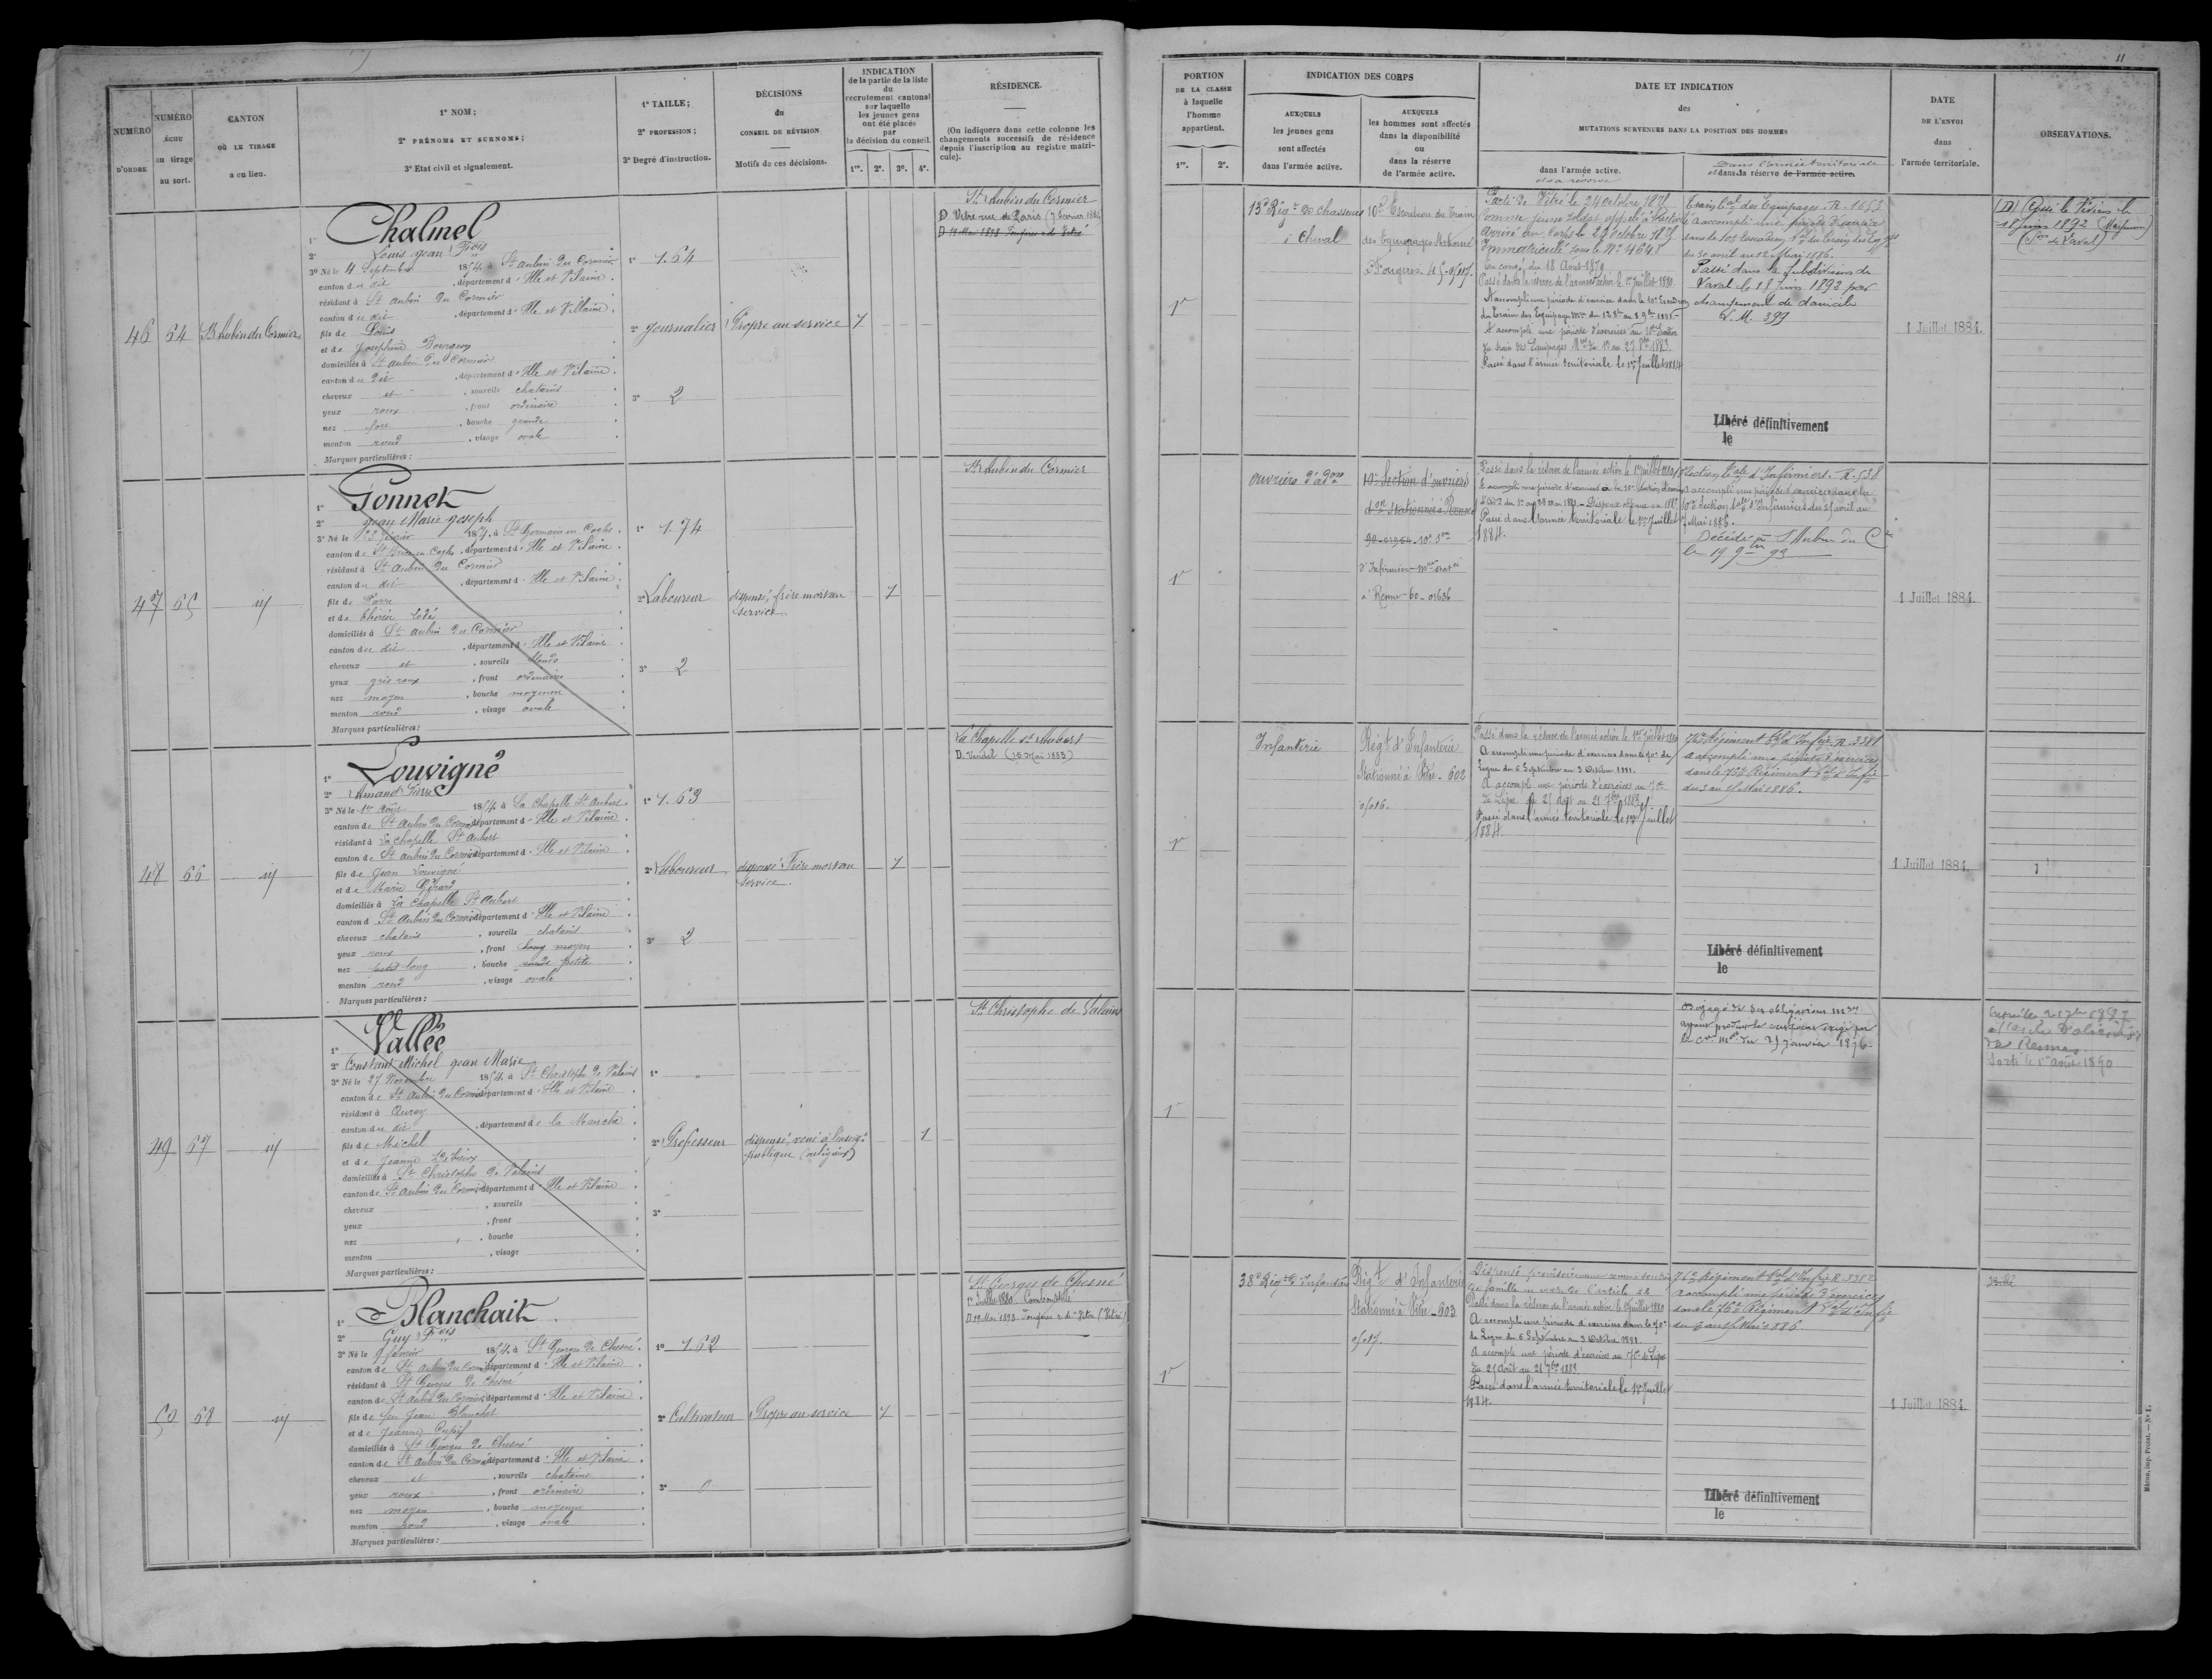 11
NUMÉRO D'ORDRE
NUMÉRO échu au tirage au sort.
CANTON OÙ LE TIRAGE a eu lieu.
1º NOM;
2º PRÉNOMS ET SURNOMS;
3º Etat civil et signalement.
1º TAILLE;
2º PROFESSION;
3º Degré d'instruction.
DÉCISIONS du CONSEIL DE RÉVISION
Motifs de ces décisions.
INDICATION de la partie de la liste du recrutement cantonal sur laquelle les jeunes gens ont été placés par la décision du conseil.
1re. 2e. 3e. 4e.
RÉSIDENCE.
(On indiquera dans cette colonne les changements successifs de résidence depuis l'inscription au registre matricule).
PORTION DE LA CLASSE à laquelle l'homme appartient.
1re. 2e.
INDICATION DES CORPS
AUXQUELS les jeunes gens sont affectés dans l'armée active.
AUXQUELS les hommes sont affectés dans la disponibilité ou dans la réserve de l'armée active.
DATE ET INDICATION des MUTATIONS SURVENUES DANS LA POSITION DES HOMMES
dans l'armée active.
et sa réserve
Dans l'armée territoriale
et dans la réserve de l'armée active.
DATE DE L'ENVOI dans l'armée territoriale.
OBSERVATIONS.
46
64
St Aubin du Cormier
1º Chalmel
2º Louis Jean Fçois
3º Né le 4 Septembre 1854, à St Aubin du Cormier
canton du dit, département d'Ille et Vilaine.
résidant à St Aubin du Cormier
canton du dit, département d'Ille et Villaine.
fils de Louis
et de Joséphine Bourgeon
domiciliés à St Aubin du Cormier
canton du dit, département d'Ille et Vilaine.
cheveux et, sourcils chatains
yeux roux, front ordinaire
nez fort, bouche grande
menton rond, visage ovale
Marques particulières:
1º 1.64
2º Journalier
3º 2
Propre au service
1
St Aubin du Cormier
D Vitré rue de Paris (7 février 188
1re
13e Régt de Chasseurs
à Cheval
10e Escadron du Train
des Equipages Militaires
à Fougères
Parti de Vitré le 24 octobre 1875
comme jeune soldat appelé à l'activité
Arrivé au Corps le 26 octobre 1875
Immatriculé sous le Nº 4648
En congé du 18 Aout 1879
Passé dans la réserve de l'armée active le 1er Juillet 1880
A accompli une période d'exercice dans le 10e Escadron
A accompli une période d'exercices au 10e Escadron
du train des Equipages
Passé dans l'armée territoriale le 1er Juillet 1884
Train tal des Equipages. R. 1653
a accompli une période d'exercices
dans le 10e Escadron tal du Train des Eqges
du 30 avril au 12 Mai 1886.
Passé dans la subdivision de
Laval le 18 Juin 1892 par
changement de domicile
L. M. 397
Libéré définitivement
le
1 Juillet 1884.
18 Juin 1892 (Mayenne)
(Son de Laval)
47
65
id
1º Gonnet
2º Jean Marie Joseph
3º Né le 23 février 1854, à St Germain en Cogles.
canton de St Brice en Cogles, département d'Ille et Vilaine.
résidant à St Aubin du Cormier
canton du dit, département d'Ille et Vilaine.
fils de Pierre
et de Thérèse
domiciliés à St Aubin du Cormier
canton du dit, département d'Ille et Vilaine.
cheveux et, sourcils blonds
yeux gris roux, front ordinaire
nez moyen, bouche moyenne
menton rond, visage ovale
Marques particulières:
1º 1.74
2º Laboureur
3º 2
dispensé, frère mort au
service
1
St Aubin du Cormier
1re
ouvriers d'adon
10e Section d'ouvriers
don Stationnée à Rennes
d'Infirmiers
à Rennes
Passé dans la réserve de l'armée active le 1er Juillet 1880
Passé dans l'armée territoriale le 1er Juillet
1884.
Section tale d'Infirmiers. R. 538
a accompli une période d'exercices dans la
10e Section tale d'Infirmiers du 25 avril au
7 Mai 1886.
Décédé à St Aubin du Cr
le 19 9bre 93
1 Juillet 1884.
48
66
id
1º Louvigné
2º Amand Pierre
3º Né le 1er Août 1854 à La Chapelle St Aubert.
canton de St Aubin du Cormier département d'Ille et Vilaine.
résidant à La Chapelle St Aubert
canton de St Aubin du Cormier département d'Ille et Vilaine
fils de Jean Louvigné
et de Marie Gérard
domiciliés à La Chapelle St Aubert
canton d St Aubin du Cormier département d'Ille et Vilaine
cheveux chatains, sourcils chatains
yeux roux, front long moyen
nez petit long, bouche ronde petite
menton rond, visage ovale
Marques particulières:
1º 1.63
2º Laboureur
3º 2
dispensé Frère mort au
service.
1
La Chapelle St Aubert
D. Vendel (15 Mai 1883)
1re
Infanterie
Régt d'Infanterie
Stationné à Vitré - 602
Passé dans la réserve de l'armée active le 1er Juillet 1880
A accompli une période d'exercices dans le 70e de
Ligne du 6 Septembre au 3 Octobre 1881.
A accompli une période d'exercices au 70e
de Ligne du 25 Août au 21 7bre 1883
Passé dans l'armée territoriale le 1er Juillet
1884.
76e Régiment tal d'Infie R. 3381
a accompli une période d'exercices
dans le 76e Régiment tal d'Infie
du 3 au 15 Mai 1886.
Libéré définitivement
le
1 Juillet 1884.
49
67
id
1º Vallée
2º Constant Michel Jean Marie
3º Né le 27 Novembre 1854 à St Christophe de Valains
canton de St Aubin du Cormier département d'Ille et Vilaine
résidant à
canton du dit, département de la Manche
fils de Michel
et de Jeanne
domiciliés à St Christophe de Valains
canton de St Aubin du Cormier département d'Ille et Vilaine
cheveux, sourcils
yeux, front
nez, bouche
menton, visage
Marques particulières:
1º "
2º Professeur
3º
dispensé, voué à l'enseigt
publique (religieux)
1
St Christophe de Valains
1re
Dégagé de ses obligations mres
ayant produit le certificat exigé par
la cre mlle du 25 Janvier 1876.
de Rennes
Sorti le 1er août 1890
50
68
id
1º Blanchait
2º Guy Fçois
3º Né le 9 février 1854, à St Georges de Chesné.
canton de St Aubin du Cormier département d'Ille et Vilaine
résidant à St Georges de Chesné
canton de St Aubin du Cormier, département d'Ille et Vilaine
fils de feu Jean Blanchet
et de Jeanne
domiciliés à St Georges de Chesné
canton de St Aubin du Cormier département d'Ille et Vilaine
cheveux et, sourcils chatains
yeux roux, front ordinaire
nez moyen, bouche moyenne
menton rond, visage ovale
Marques particulières:
1º 1.62
2º Cultivateur
3º 0
Propre au service
1
St Georges de Chesné
1er Juillet 1880
1re
38e Régt d'Infanterie
Régt d'Infanterie
Stationné à Vitré - 603
Dispensé provisoirement comme soutien
de famille en vertu de l'article 22
Passé dans la réserve de l'armée active le 1 Juillet 1880
A accompli une période d'exercices dans le 70e
de Ligne du 6 Septembre au 3 Octobre 1881.
A accompli une période d'exercices au 70e de Ligne
du 25 Août au 21 7bre 1883.
Passé dans l'armée territoriale le 1er Juillet
1884.
76e Régiment tal d'Infie R. 3382
a accompli une période d'exercices
dans le 76e Régiment tal d'Infie
du 3 au 15 Mai 1886
Libéré définitivement
le
1 Juillet 1884.
Mâcon, imp. Protat. — Nº 1.